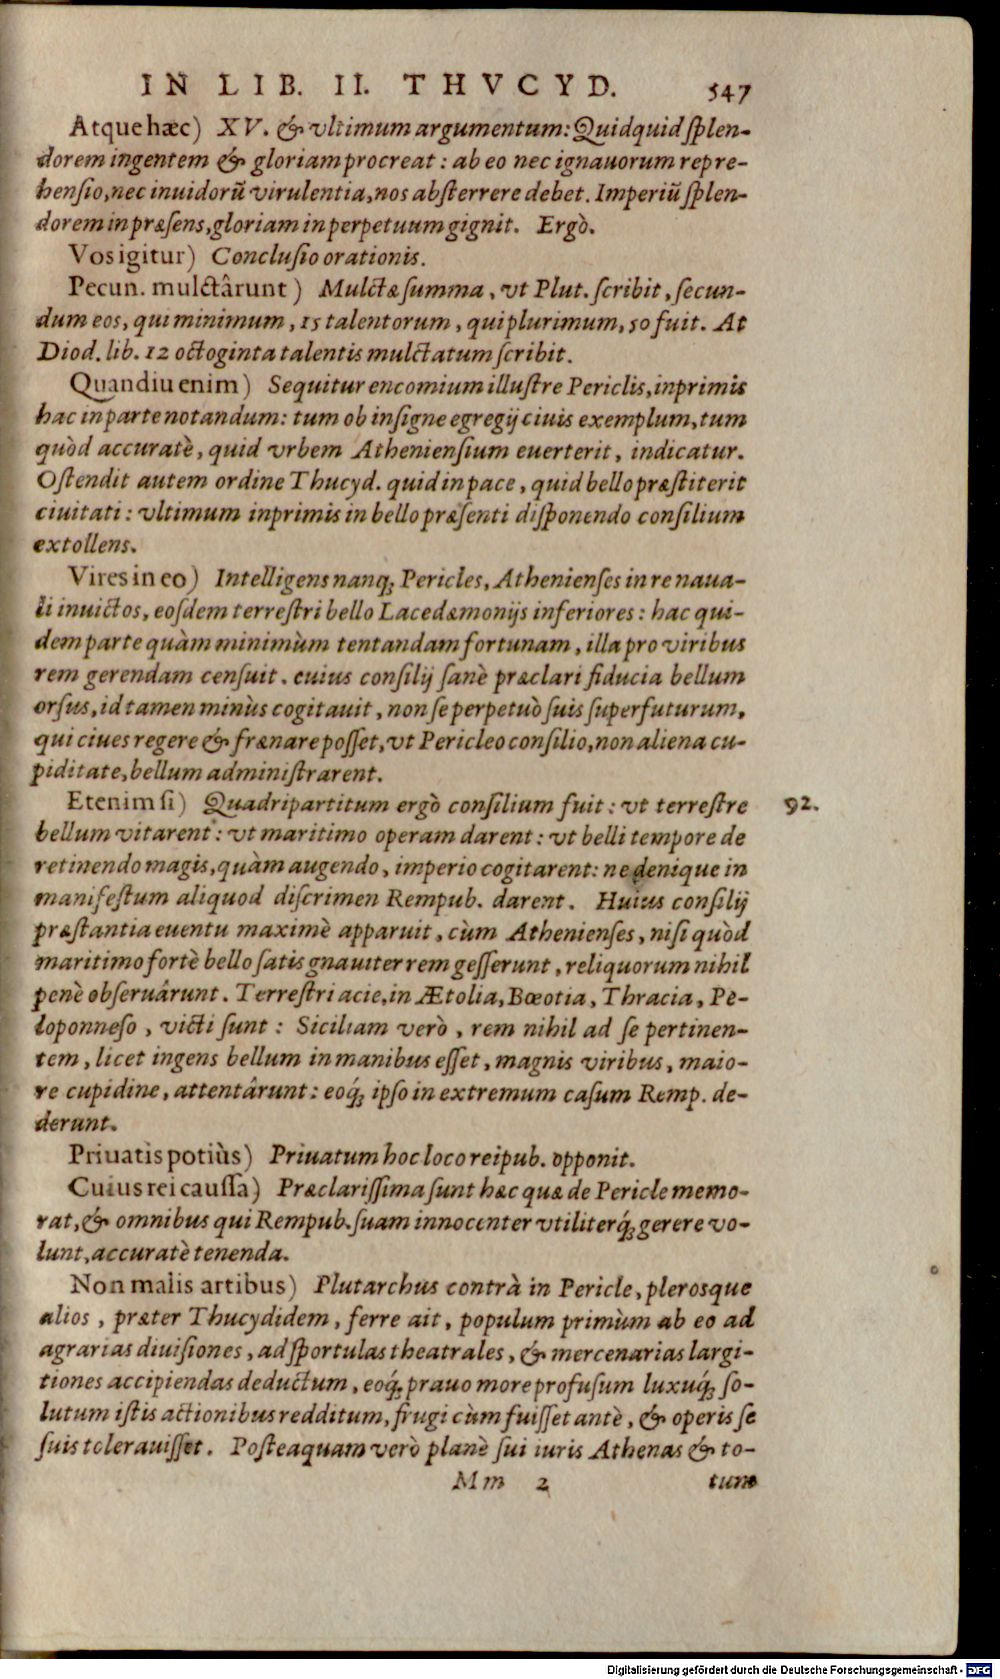 IN LIB. II. THVCYD. 547
Atque hæc) XV. & vltimum argumentum: Quidquid ſplen-
dorem ingentem & gloriam procreat: ab eo nec ignauorum repre-
henſio, nec inuidorũ virulentia, nos abſterrere debet. Imperiũ ſplen-
dorem in præſens, gloriam in perpetuum gignit. Ergò.
Vos igitur) Concluſio orationis.
Pecun. mulctârunt) Mulctæ ſumma, vt Plut. ſcribit, ſecun-
dum eos, qui minimum, 15 talentorum, qui plurimum, 50 fuit. At
Diod. lib. 12 octoginta talentis mulctatum ſcribit.
Quandiu enim) Sequitur encomium illuſtre Periclis, inprimis
hac in parte notandum: tum ob inſigne egregij ciuis exemplum, tum
quòd accuratè, quid vrbem Athenienſium euerterit, indicatur.
Oſtendit autem ordine Thucyd. quid in pace, quid bello præſtiterit
ciuitati: vltimum inprimis in bello præſenti diſponendo conſilium
extollens.
Vires in eo) Intelligens nanq; Pericles, Athenienſes in re naua-
li inuictos, eoſdem terreſtri bello Lacedæmonijs inferiores: hac qui-
dem parte quàm minimùm tentandam fortunam, illa pro viribus
rem gerendam cenſuit. cuius conſilij ſanè præclari fiducia bellum
orſus, id tamen minùs cogitauit, non ſe perpetuò ſuis ſuperfuturum,
qui ciues regere & frænare poſſet, vt Pericleo conſilio, non aliena cu-
piditate, bellum adminiſtrarent.
Etenim ſi) Quadripartitum ergò conſilium fuit: vt terreſtre 92.
bellum vitarent: vt maritimo operam darent: vt belli tempore de
retinendo magis, quàm augendo, imperio cogitarent: ne denique in
manifeſtum aliquod diſcrimen Rempub. darent. Huius conſilij
præſtantia euentu maximè apparuit, cùm Athenienſes, niſi quòd
maritimo fortè bello ſatis gnauiter rem geſſerunt, reliquorum nihil
penè obſeruârunt. Terreſtri acie, in Ætolia, Bœotia, Thracia, Pe-
loponneſo, victi ſunt: Siciliam verò, rem nihil ad ſe pertinen-
tem, licet ingens bellum in manibus eſſet, magnis viribus, maio-
re cupidine, attentârunt: eoq́; ipſo in extremum caſum Remp. de-
derunt.
Priuatis potiùs) Priuatum hoc loco reipub. opponit.
Cuius rei cauſſa) Præclariſſima ſunt hæc quæ de Pericle memo-
rat, & omnibus qui Rempub. ſuam innocenter vtiliterq́; gerere vo-
lunt, accuratè tenenda.
Non malis artibus) Plutarchus contrà in Pericle, pleroſque
alios, præter Thucydidem, ferre ait, populum primùm ab eo ad
agrarias diuiſiones, ad ſportulas theatrales, & mercenarias largi-
tiones accipiendas deductum, eoq́; prauo more profuſum luxuq́; ſo-
lutum iſtis actionibus redditum, frugi cùm fuiſſet antè, & operis ſe
ſuis tolerauiſſet. Poſteaquam verò planè ſui iuris Athenas & to-
Mm 2 tum
Digitalisierung gefördert durch die Deutsche Forschungsgemeinschaft - DFG